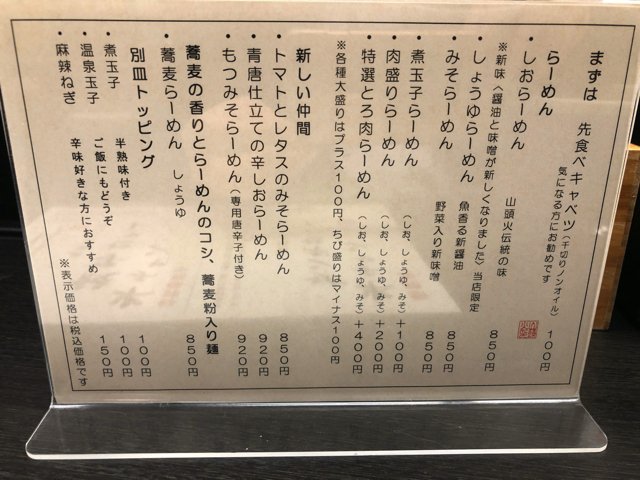 まずは 先食べキャベツ（千切りノンオイル） 100円
気になる方にお勧めです
らーめん
・しおらーめん 山頭火伝統の味 850円
※新味〈醤油と味噌が新しくなりました〉当店限定
・しょうゆらーめん 魚香る新醤油 850円
・みそらーめん 野菜入り新味噌 850円
煮玉子らーめん （しお、しょうゆ、みそ）＋100円
・肉盛りらーめん （しお、しょうゆ、みそ）＋200円
・特選とろ肉らーめん （しお、しょうゆ、みそ）＋400円
※各種大盛りはプラス100円、ちび盛りはマイナス100円
新しい仲間
・トマトとレタスのみそらーめん 850円
・青唐仕立ての辛しおらーめん 920円
・もつみそらーめん（専用唐辛子付き） 920円
蕎麦の香りとらーめんのコシ、蕎麦粉入り麺
・蕎麦らーめん しょうゆ 850円
別皿トッピング
・煮玉子 半熟味付き 100円
・温泉玉子 ご飯にもどうぞ 100円
・麻辣ねぎ 辛味好きな方におすすめ 150円
※表示価格は税込価格です